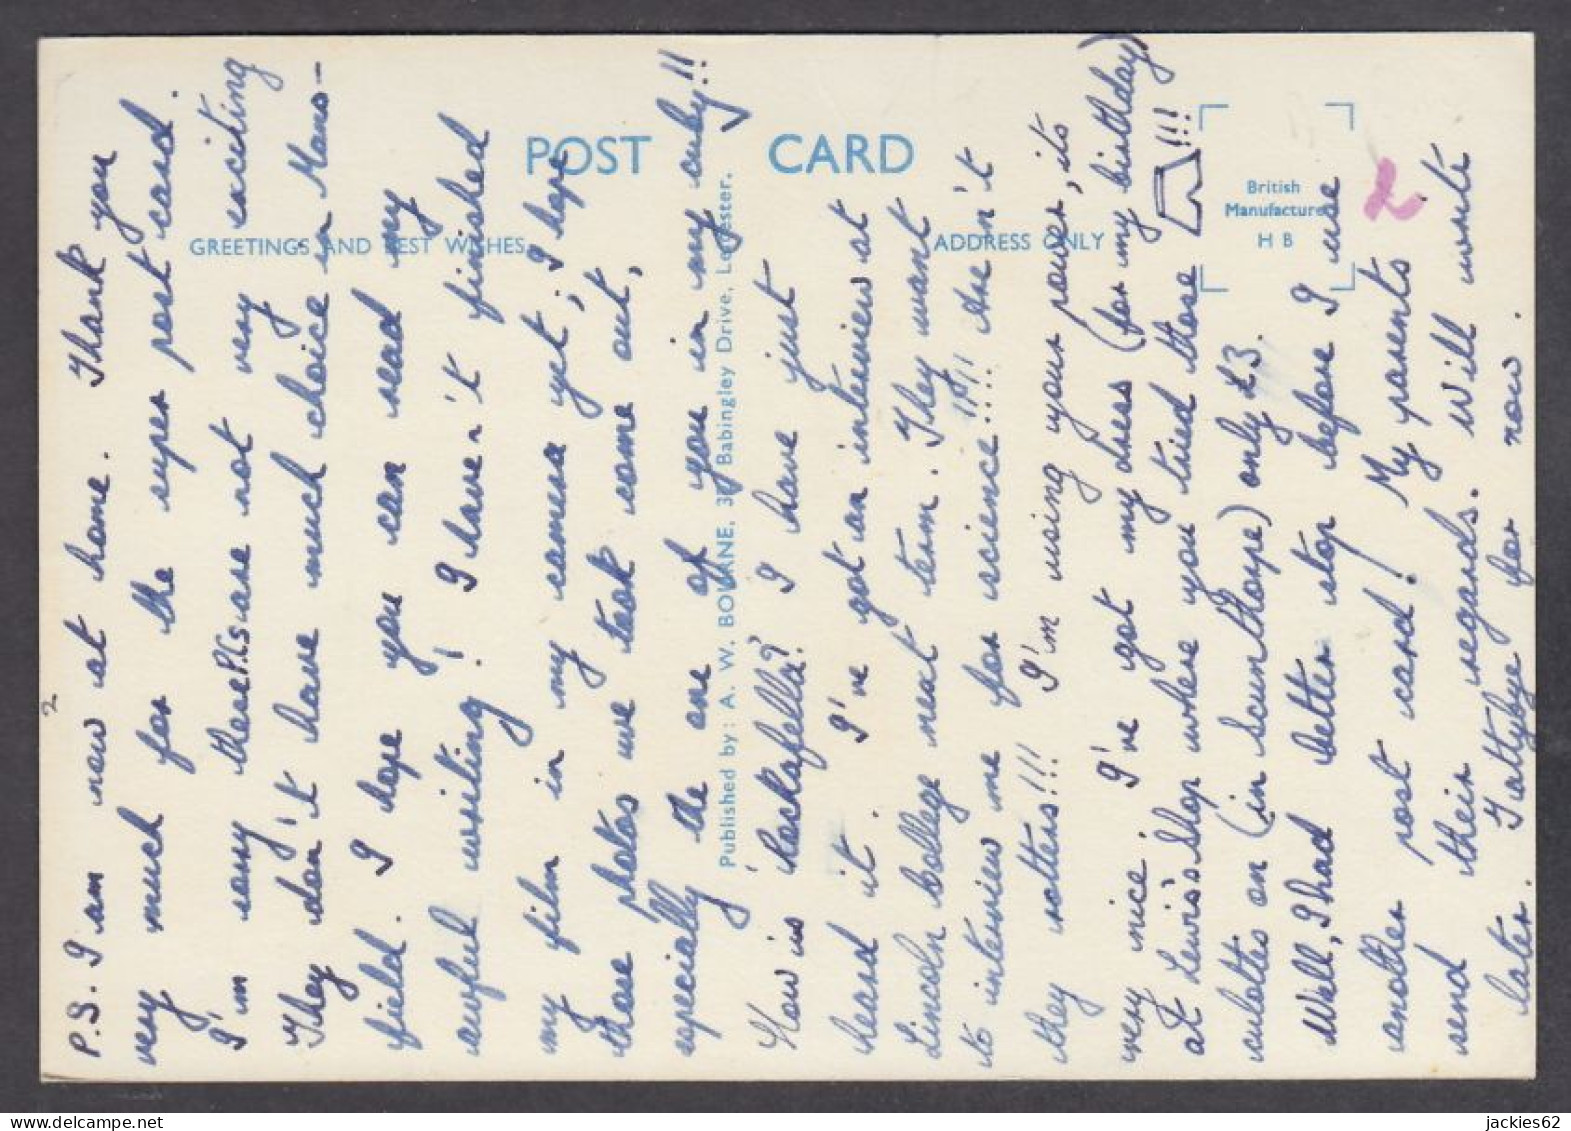 2
P.S. I am now at home. Thank you
very much for the super post card.
I'm sorry these P.Cs are not very exciting
They don't have much choice in Mans-
field. I hope you can read my
awful writing! I haven't finished
my film in my camera yet; I hope
those photos we took come out,
especially the one of you in my cuby!!
How is 'Rockafella'? I have just
heard it. I've got an interview at
Lincoln College next term. They want
to interview me for science!!!! !!!! Aren't
they rotters!!! I'm using your power, its
very nice. I've got my dress (for my birthday)
at Lewis's Shop where you tried those !!!
culottes on (in Scunthorpe) only £3.
Well, I had better stop before I use
another post card! My parents
send their regards. Will write
later. Tattybye for now.
POST CARD
GREETINGS AND BEST WISHES
ADDRESS ONLY
British
Manufacture
H B
2
Published by: A. W. BOURNE, Babingley Drive, Leicester.
jackies62